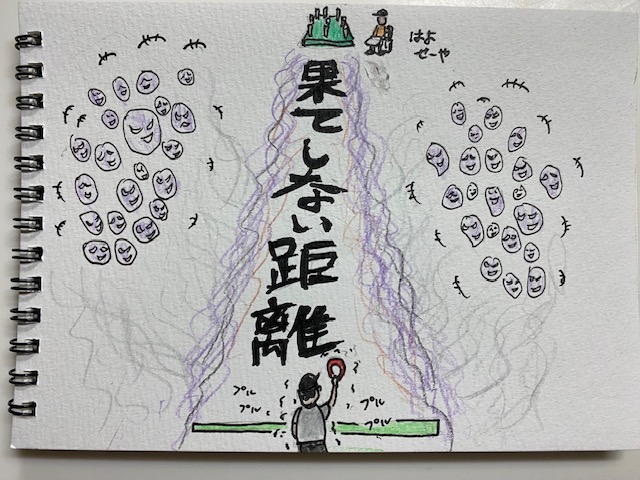 はよ
せーや
果てしない距離
プル
プル
プル
プル